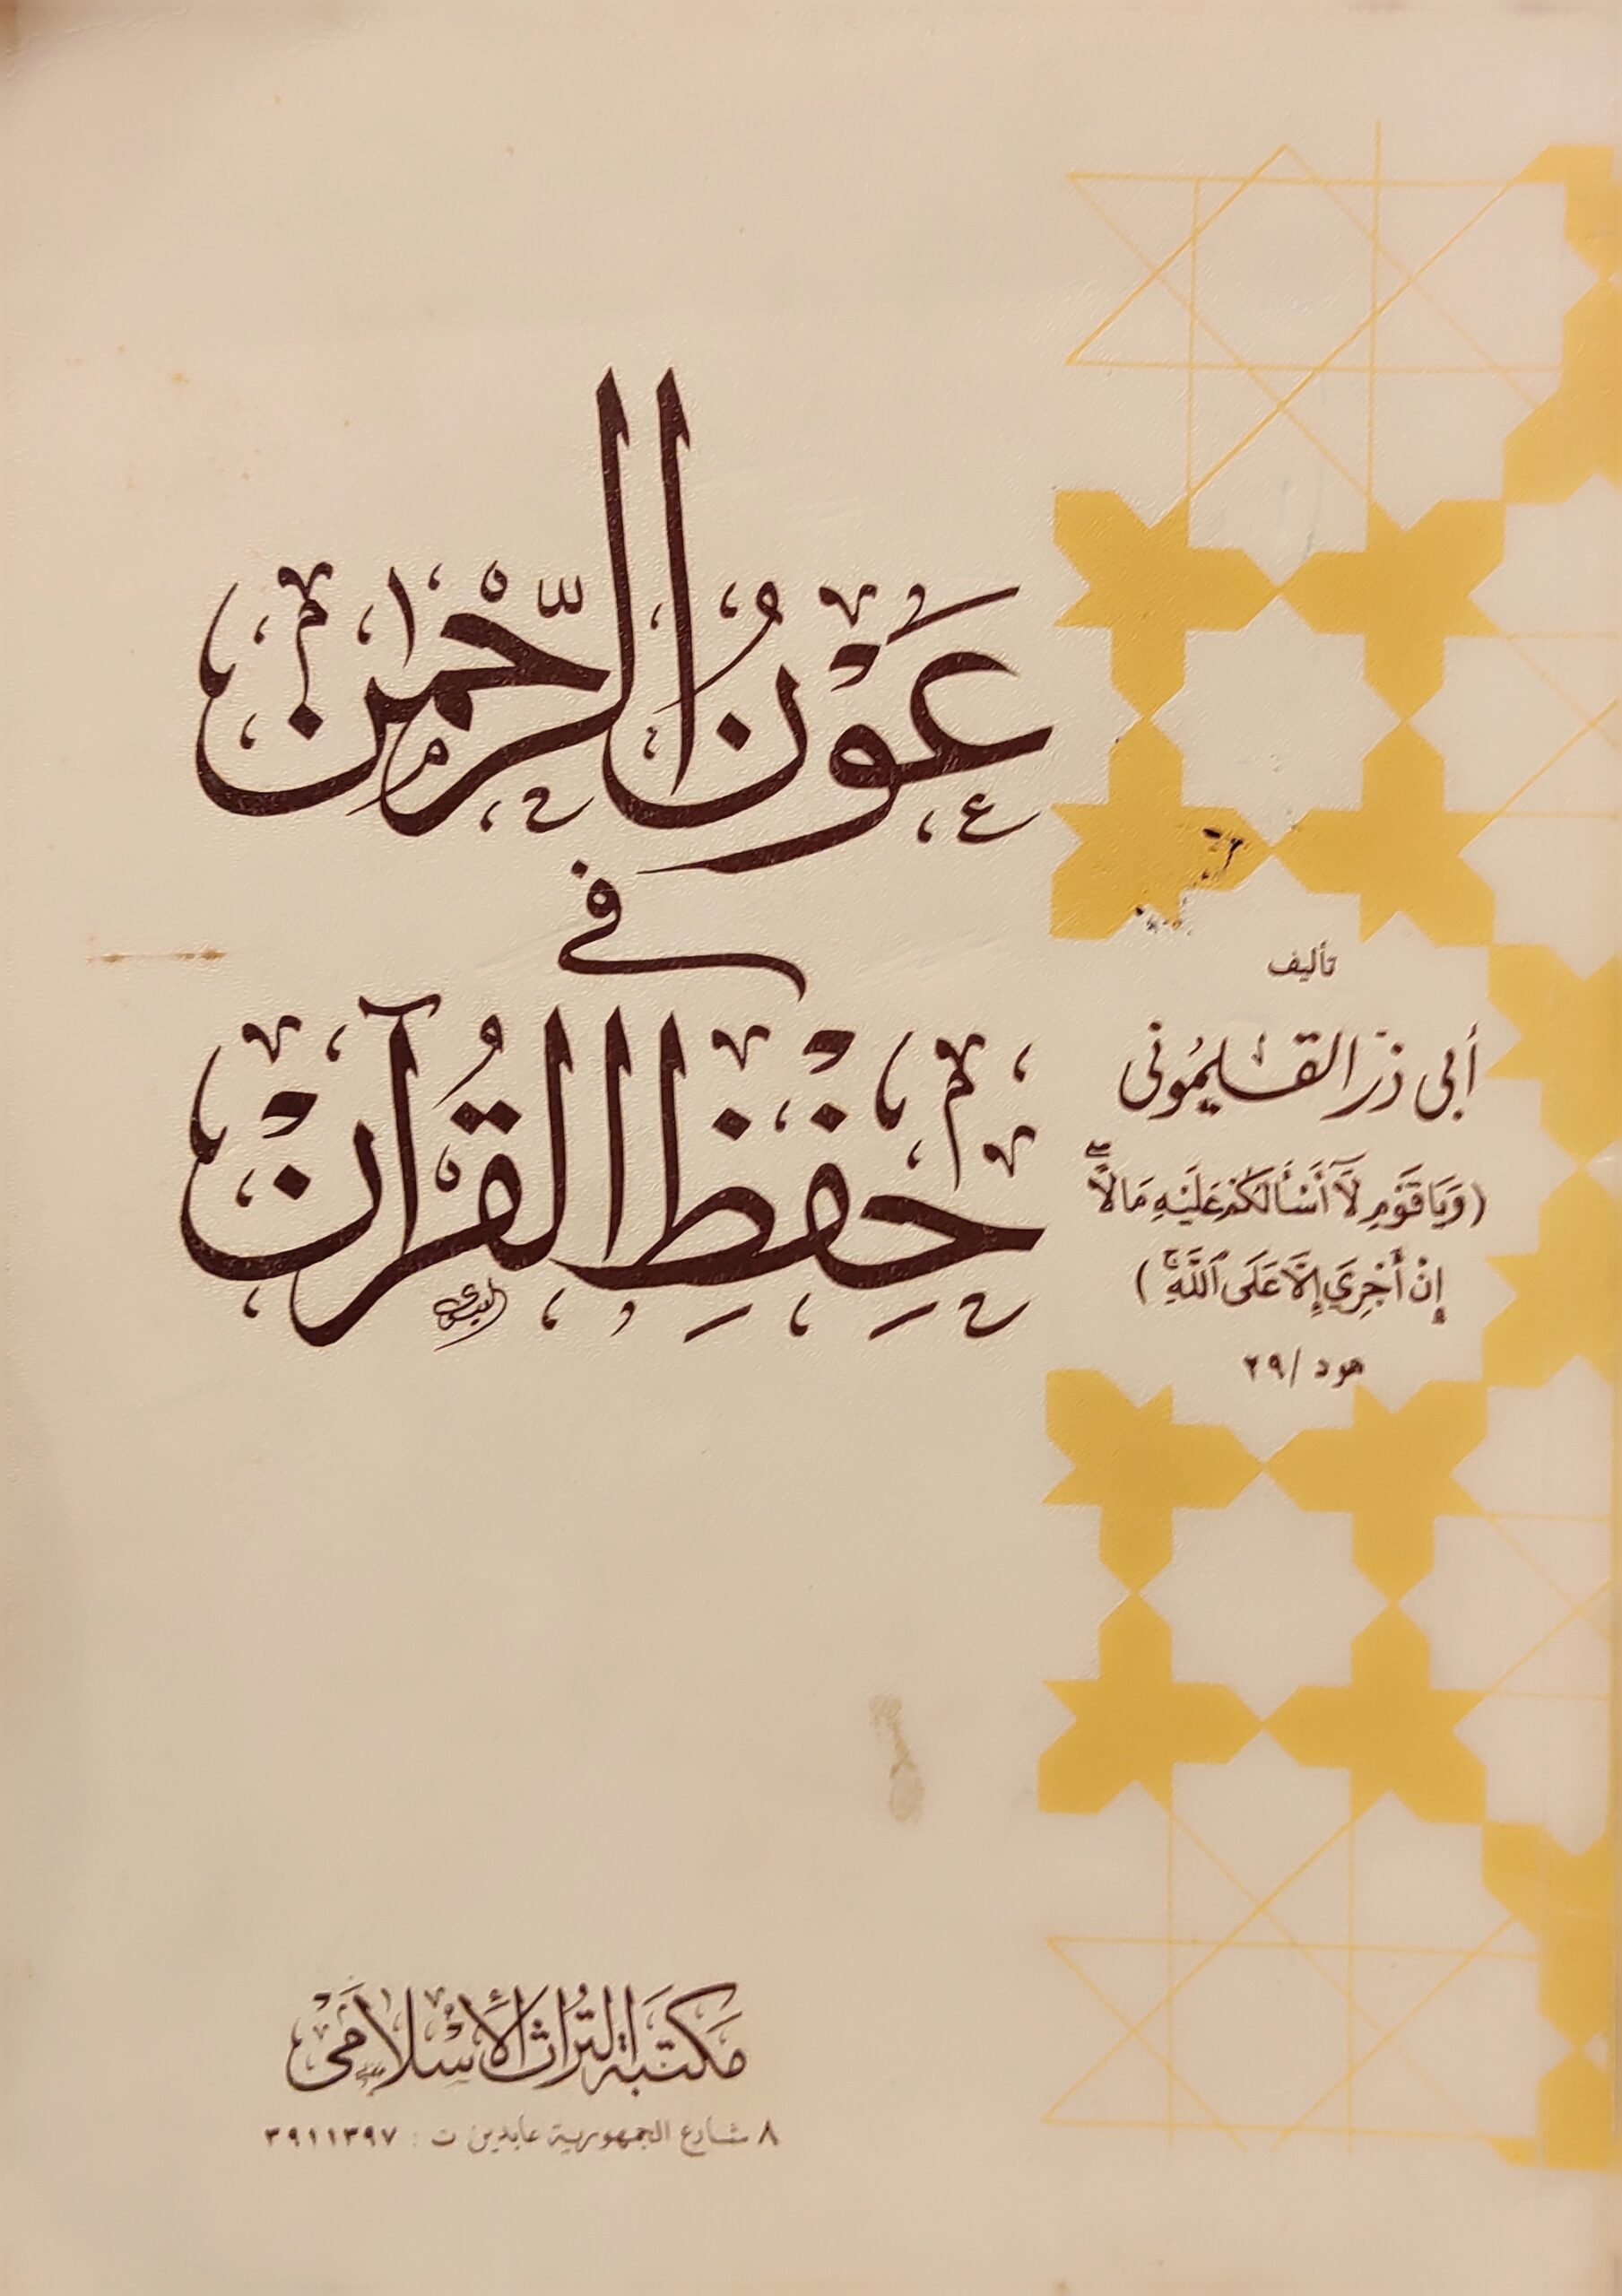 عَوْنُ الرَّحْمٰن
في
حِفْظِ الْقُرْآنْ
تأليف
أبى ذر القليمُونى
(وَيَا قَوْمِ لَآ أَسْأَلُكُمْ عَلَيْهِ مَالًا ۖ
إِنْ أَجْرِيَ إِلَّا عَلَى ٱللَّهِ ۚ)
هود /٢٩
مَكتبة التُراث الأَسْلاَمَىْ
٨ شارع الجمهورية عابدين ت : ٣٩١١٣٩٧